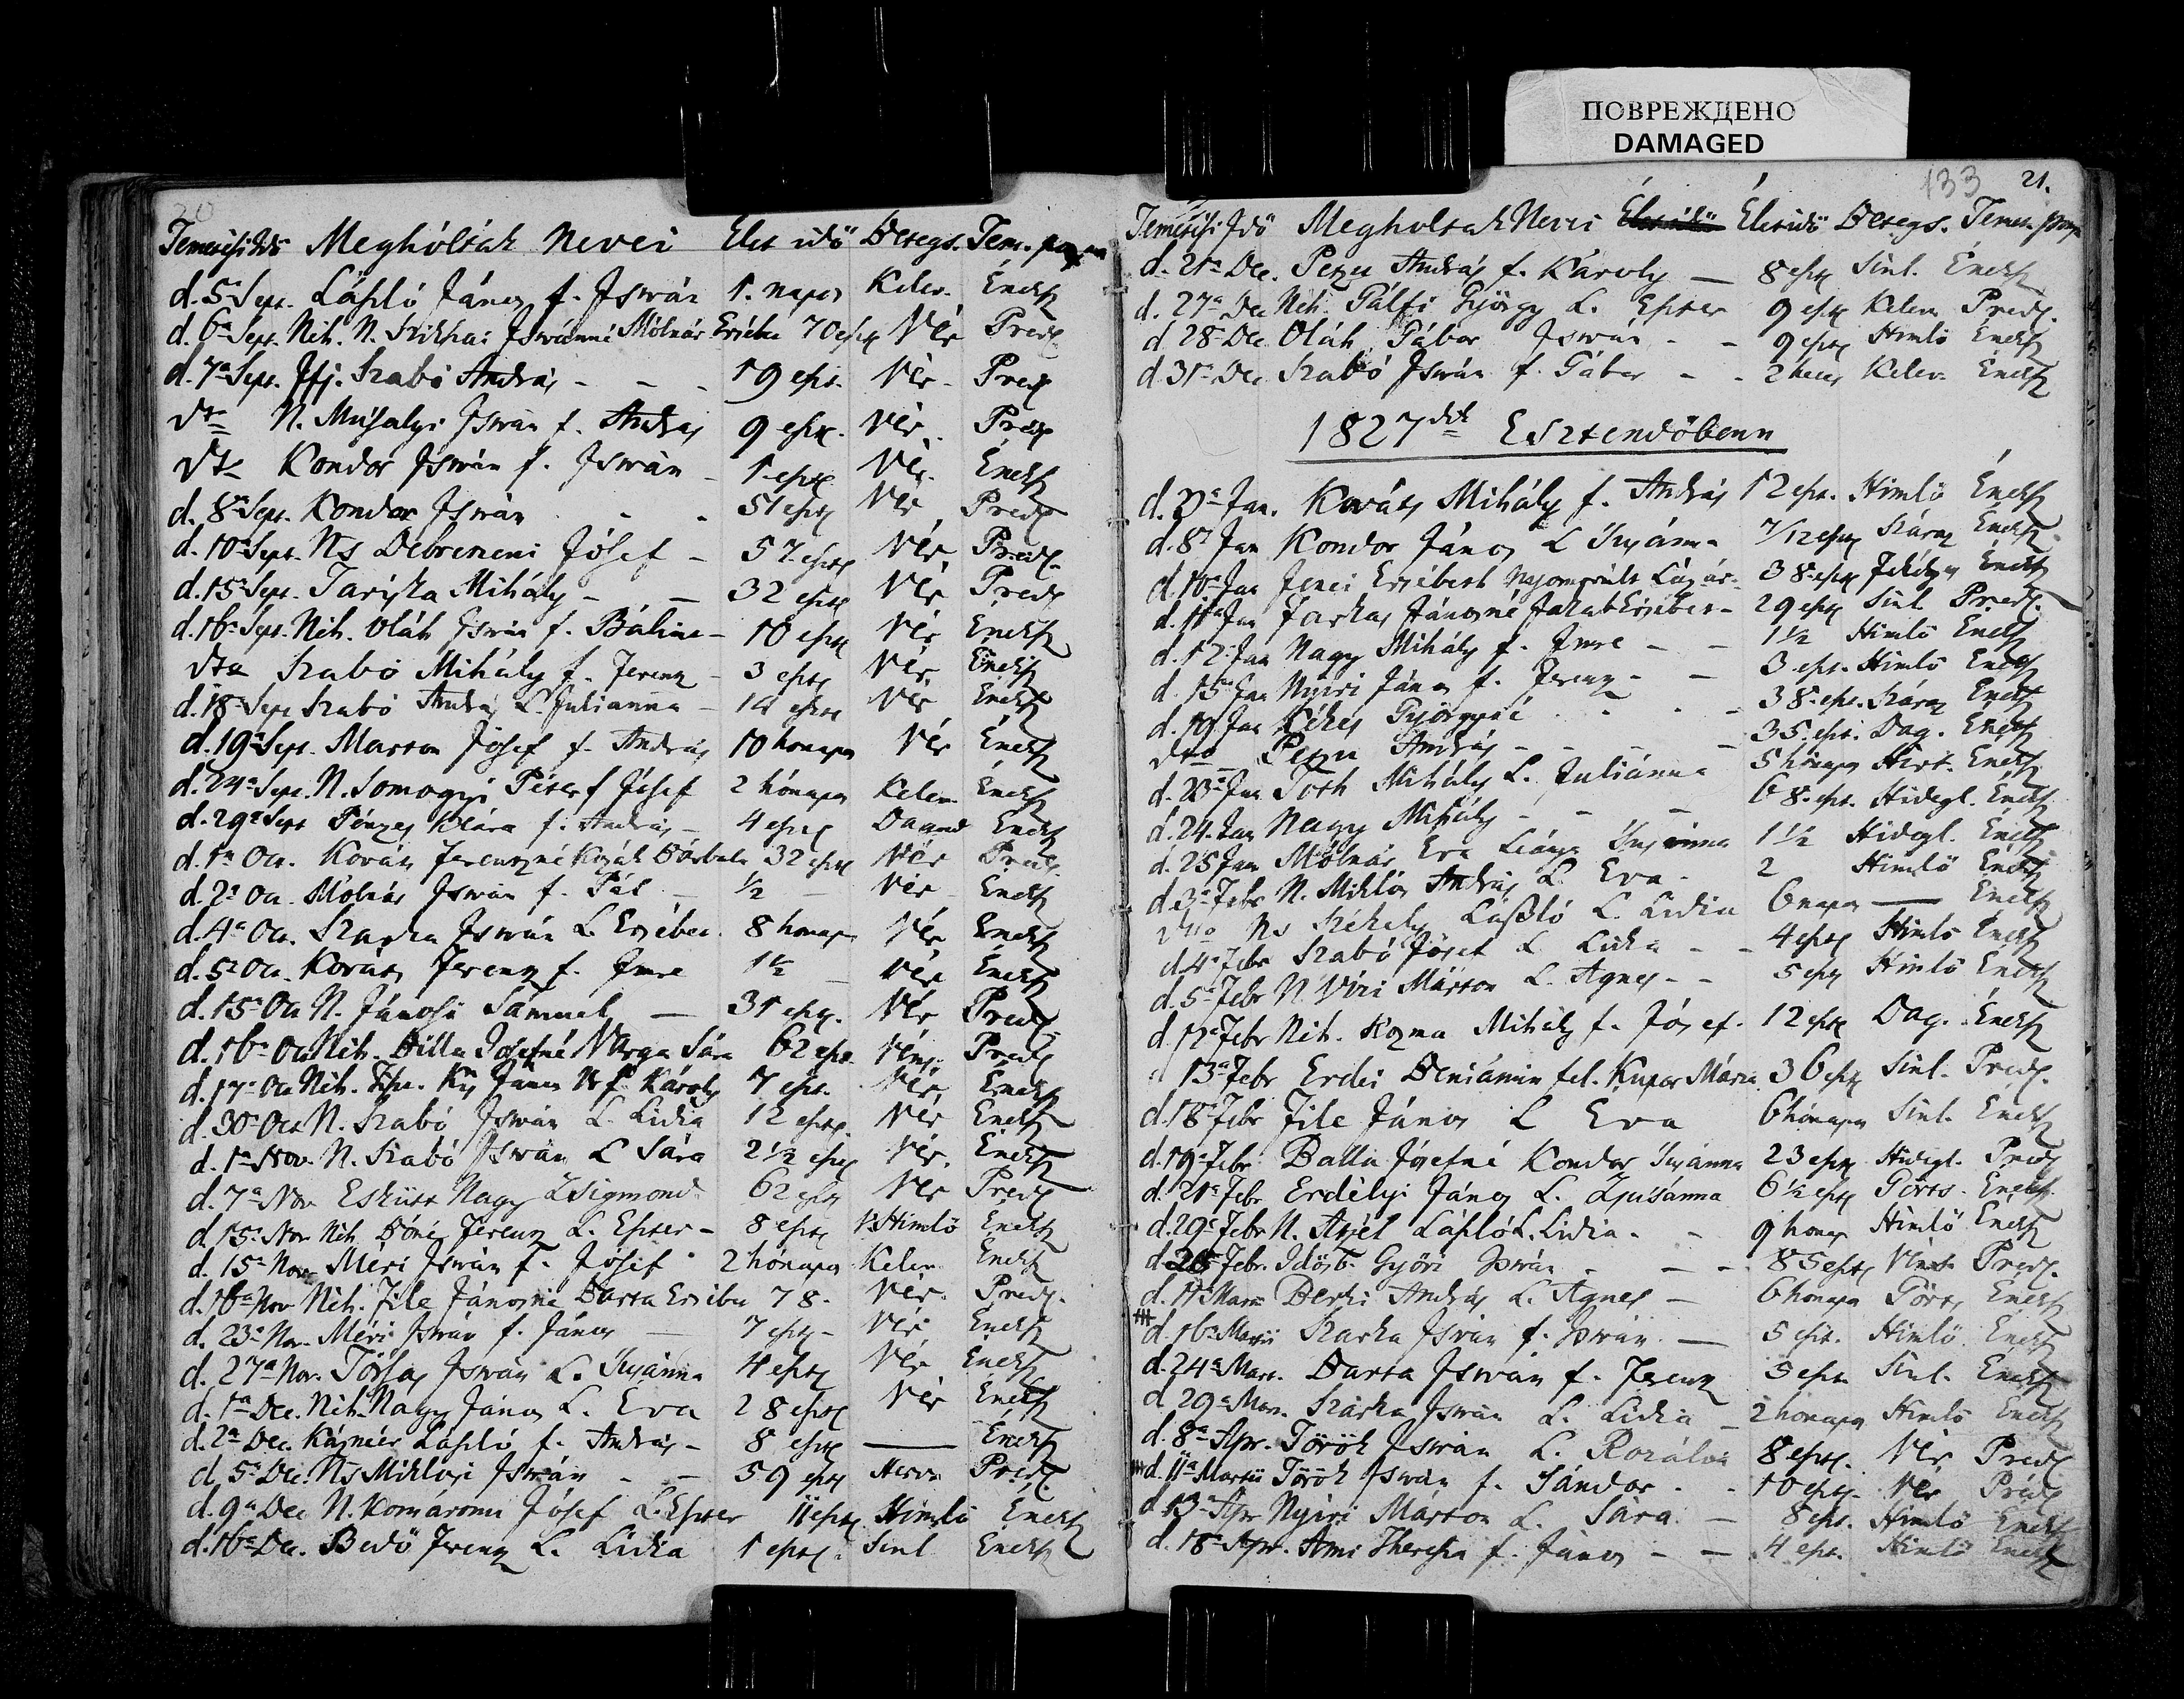 ПОВРЕЖДЕНО
DAMAGED
20
Temetési Idő Meghóltak Nevei Élet idő Betegs. Tem.
d. 5a Sept. László János f. István 1. napos Kelev. Énekſz
d. 6a Sept. Néh. N. Istvánné Mólnár Ersébet 70 eszt Vér Préd.
d. 7a Sept. Ifj. Szabó András - - - 19 eszt. Vér - Préd
dto N. István f. András 9 eszt. Vér. Préd
dto Kondor István f. István - 1 eszt Vér. Énekſz
d. 8a Sept. Kondor István - - 51 eszt Vér Préd
d. 10a Sept. Ns Debreceni Jósef - 57 eszt Vér Préd.
d. 15a Sept. Tariska Mihály - - 32 eszt Vér Préd
d. 16a Sept. Néh. Oláh István f. Bálint - 10 eszt Vér Énekſz
dto Szabó Mihály f. Ferencz - 3 eszt Vér Énekſz
d. 18a Sept Szabó András L. Julianna - 14 eszt Vér Énekſz
d. 19a Sept. Marton Jósef f. András 10 hónapos Vér Énekſz
d. 24a Sept. N. Somogyi Péter f Jósef 2 hónapos Kelev. Énekſz
d. 29a Sept Pénzes Klára f. András - 4 eszt Énekſz
d. 1a Oct. Kováts Ferenczné Kozák Borbála 32 eszt Vér Préd.
d. 2a Oct. Mólnár István f. Pál - 1/2 - Vér Énekſz
d. 4a Oct. Szarka István L. Ersébet. 8 hónap Vér Énekſz
d. 5a Oct. Kováts Ferencz f. Imre 1 1/2 - Vér Énekſz
d. 15a Oct N. Jánosi Sámuel - 31 eszt. Vér Préd.
d. 16a Oct Néh. Billa Josefné Varga Sára 62 eszt Véns. Préd
d. 17a Oct Néh. Kis János f. Károly 7 eszt. Vér Énekſz
d. 30a Oct N. Szabó István L. Lidia 12 eszt. Vér Énekſz
d. 1a Nov. N. Szabó István L Sára 2 1/2 eszt Vér. Énekſz
d. 7a Nov Esküt Nagy Zsigmond 62 eszt Vér Préd
d. 15a Nov Néh. Ferencz L. Eszter - 8 eszt V. Himlő Énekſz
d. 15a Nov Méri István f. Jósef - 2 hónapos Kelev. Énekſz
d. 16a Nov Néh. File Jánosné Barta Ersébet 78. Vér. Préd.
d. 23a Nov. Méri István f. János - 7 eszt - Vér Énekſz
d. 27a Nov. István L. Susánna 4 eszt Vér Énekſz
d. 1a Dec. Néh. Nagy János L. Eva 28 eszt Vér Énekſz
d. 2a Dec. László f. András - 8 eszt — Énekſz
d. 5a Dec. Ns Miklósi István - - 59 eszt Préd
d. 9a Dec N. Komáromi Jósef L. Eszter 11 eszt Himlő Énekſz
d. 16a Dec. Bedő Ferencz L. Lidia 1 eszt. Sinl Énekſz
133 21.
Temetési Idő Megholtak Nevei Életidő Betegs. Temet.
d. 21a Dec. András f. Károly - 8 eszt Sinl. Énekſz
d. 27a Dec Néh. Pálfi György L. Eszter 9 eszt Kelev. Préd.
d 28a Dec Oláh Gábor István - - 9 eszt Himlő Énekſz
d. 31a Dec Szabó István f. Gábor - - 2 hetes Kelev. Énekſz
1827dik Esztendőbenn
d. 3a Jan. Kováts Mihály f. András 12 eszt. Himlő Énekſz
d. 8a Jan Kondor János L Susánna 7/12 eszt Száraz Énekſz
d. 10a Jan Jenei Ersébeth 38 eszt Énekſz
d. 11a Jan Farkas Jánosné Jakab Ersébet - 29 eszt Sinl Préd.
d. 12a Jan Nagy Mihály f. Imre - - 1 1/2 Himlő Énekſz
d. 15a Jan Nyiri János f. Ferencz - - 3 eszt. Himlő Énekſz
d. 19 Jan Békés Györgyné - - - 38. eszt. Száraz Énekſz
dto András - - - 35. eszt. Dag. Énekſz
d. 23a Jan Toth Mihály L. Juliánna 5 hónapos Hirt. Énekſz
d. 24. Jan Nagy Mihály - - - 68. eszt. Hidegl. Énekſz
d. 25 Jan Mólnár Eva Leánya Susánna 1 1/2 Hidegl. Énekſz
d. 3a Febr N. Miklós András L. Eva - 2 Himlő Énekſz
dtto Ns Székely László L. Lidia 6 napos — Énekſz
d. 4a Febr Szabó Jósef L Lidia - - 4 eszt Himlő Énekſz
d. 5a Febr N. Viri Márton L. Agnes - - 5 eszt Himlő Énekſz
d. 12a Febr Néh. Kozma Mihály f. Jósef. 12 eszt Dag. Énekſz
d 13a Febr Erdei Beniámin fel. Kupor Mária. 36 eszt Sinl. Préd.
d. 18a Febr File János L Eva 6 hónapos Sinl. Énekſz
d. 19a Febr. Balla Jósefné Kondor Susánna 23 eszt Hidegl. Préd
d. 21a Febr Erdélyi János L. Zsusánna 6 1/2 eszt Görts. Énekſz
d. 29a Febr N. László L. Lidia - - 9 hónap Himlő Énekſz
d. 28 Febr. Idősb. Győri István - - - 85 eszt Véns. Préd.
d. 11a Mart Berki András L. Agnes - 6 hónapos Görts Énekſz
d. 16a Martii Szarka István f. István - 5 eszt. Himlő Énekſz
d. 24a Mart. Barta István f. Ferencz 5 eszt. Sinl. Énekſz
d 29a Mart. Szarka István L. Lidia - 2 hónapos Himlő Énekſz
d. 8a Apr. Török István L. Rozália 8 eszt. Vér Préd
d. 11a Martii Török István f. Sándor - - 10 eszt. Vér Préd
d. 13a Apr Nyiri Márton L. Sára - 8 eszt. Himlő Énekſz
d. 18a Apr. Ami Theresia f. János - - 4 eszt. Himlő Énekſz